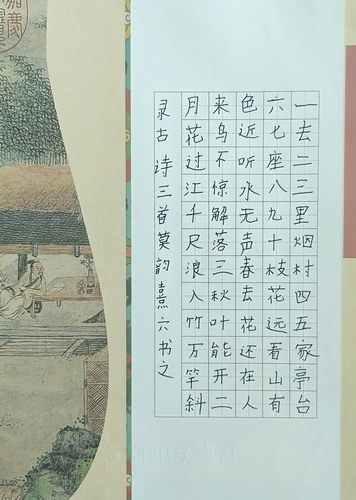 一去二三里烟村四五家亭台
六七座八九十枝花远看山有
色近听水无声春去花还在人
来鸟不惊解落三秋叶能开二
月花过江千尺浪入竹万竿斜
录古诗三首莫韵熹六书之